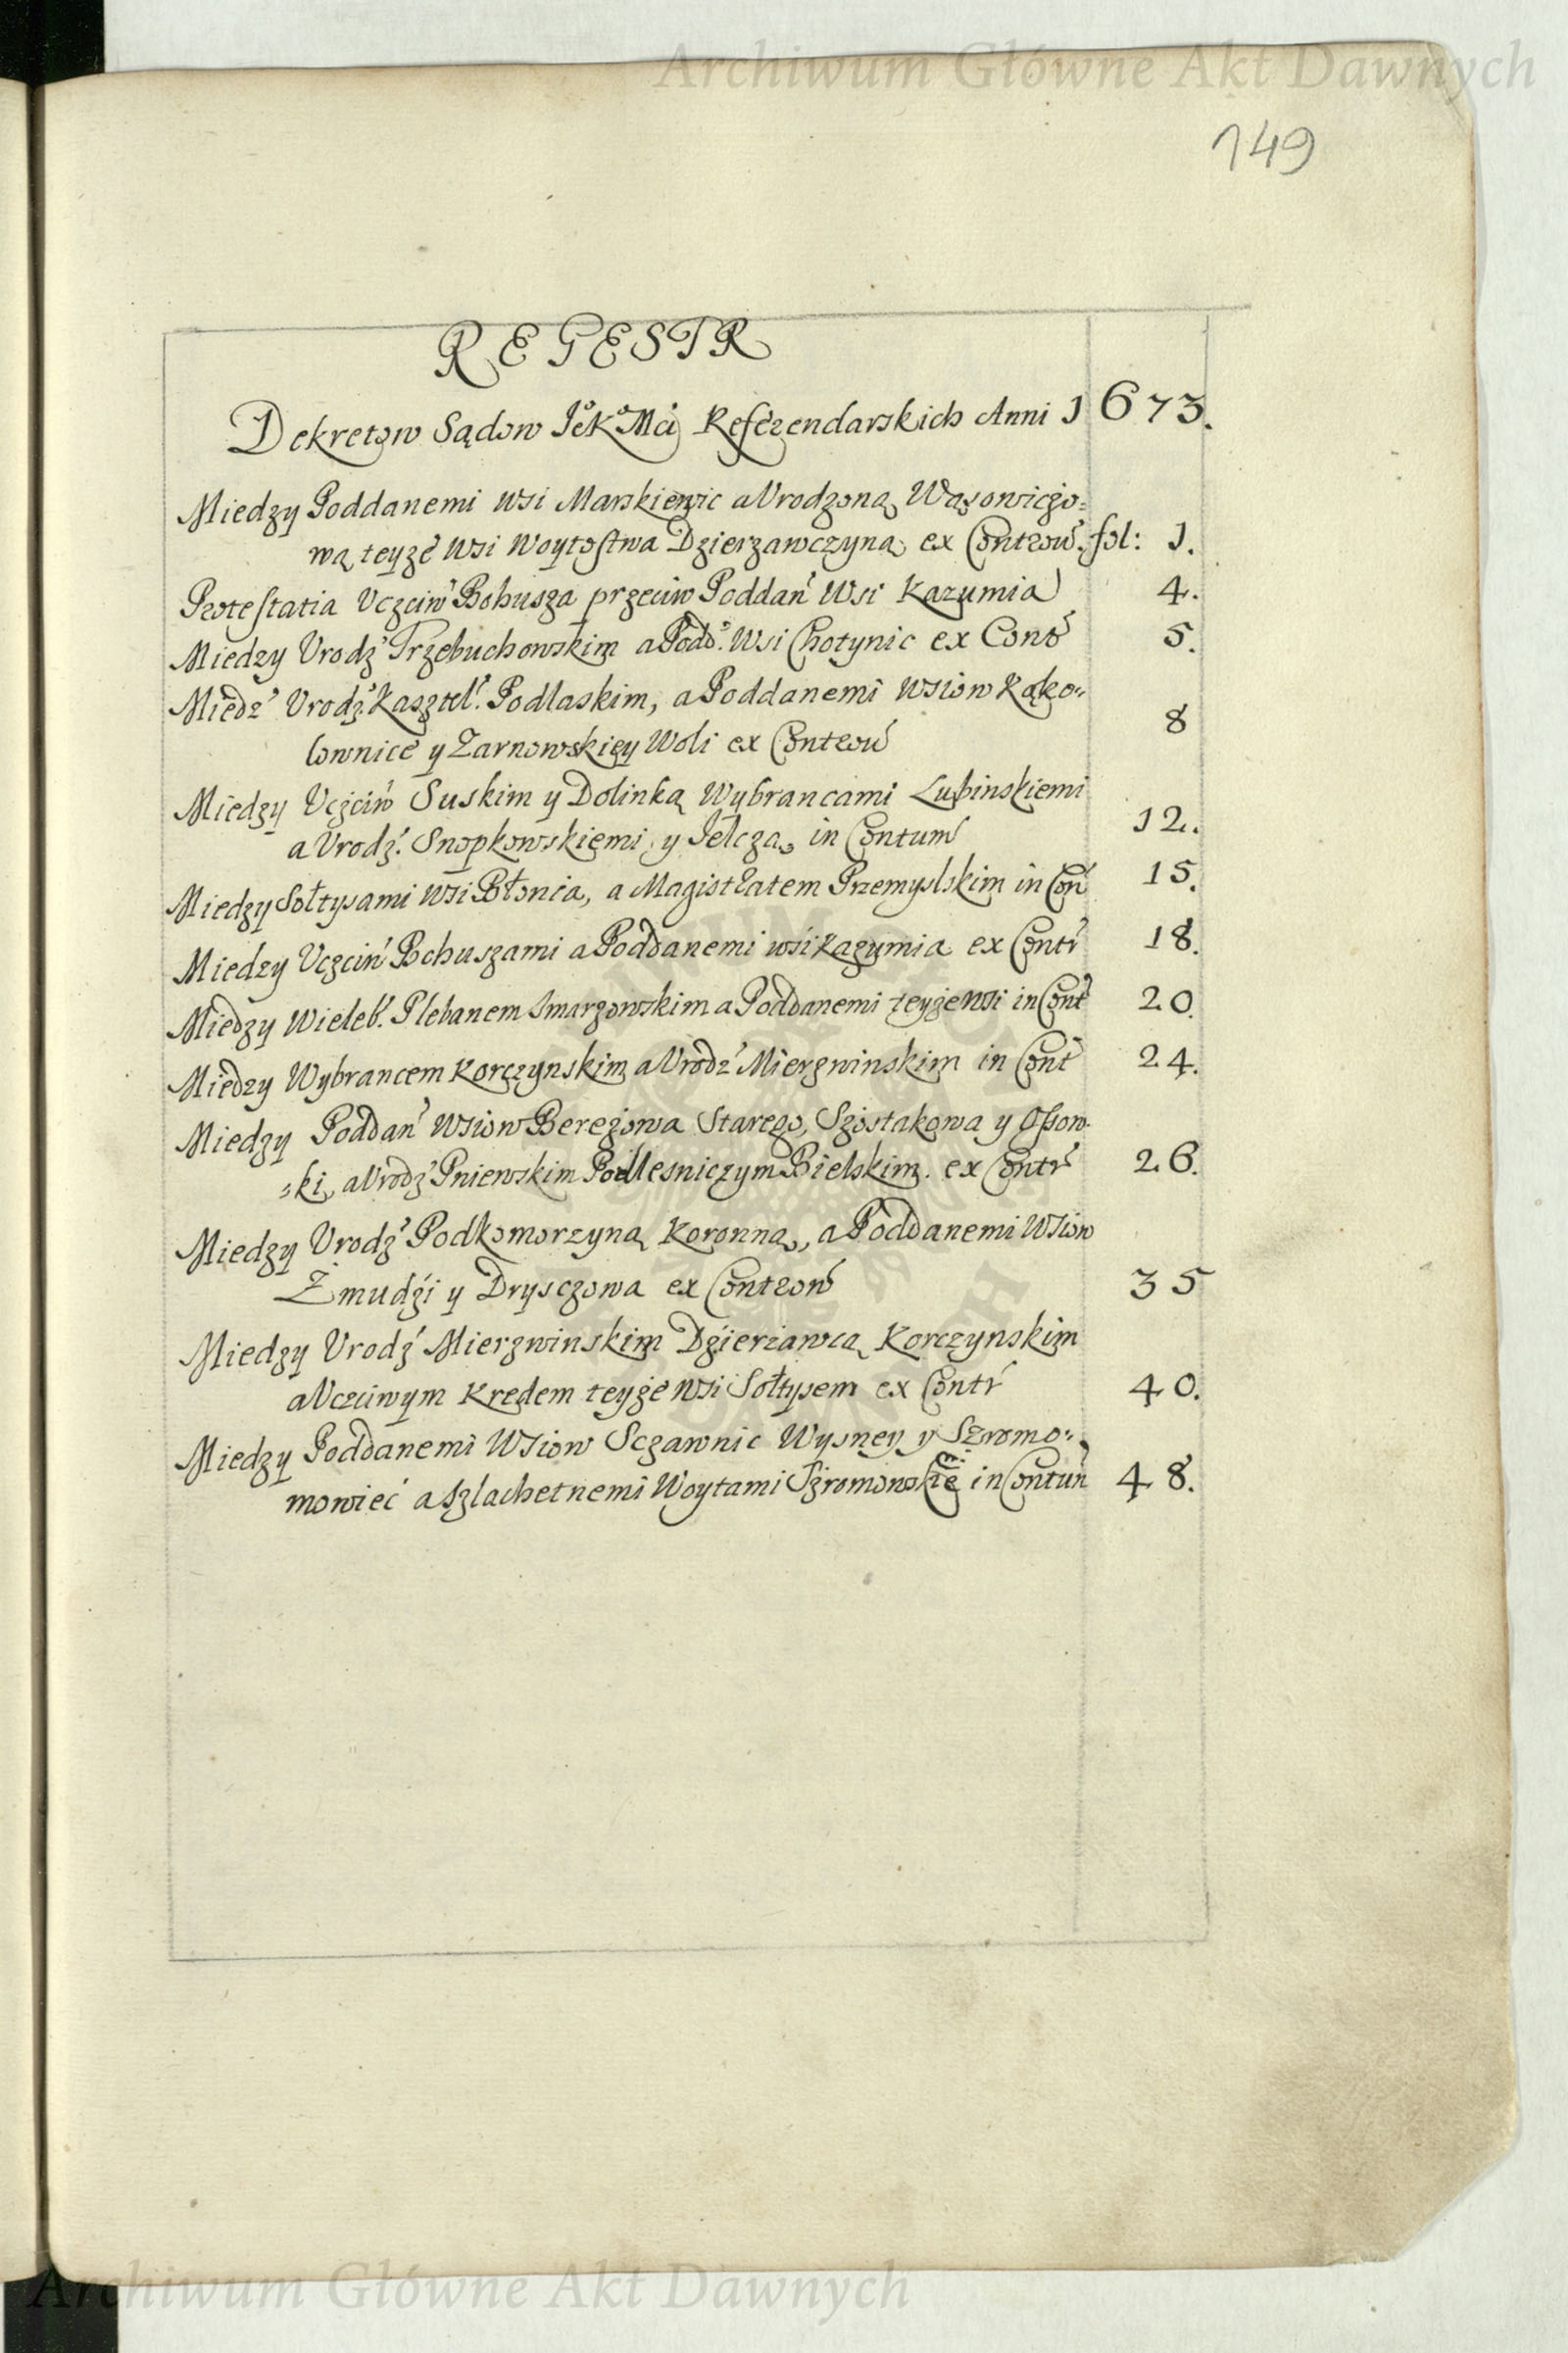 Archiwum Główne Akt Dawnych
149
REGESTR
Dekretow Sądow JeKMci Referendarskich Anni 1673.
Miedzy Poddanemi wsi Markiewic a Vrodzoną Wąsowiczo=
wą teyze wsi Woytostwa Dzierzawczyną ex Controw. fol: 1.
Protestatia Vczciw Bohusza przeciw Poddań Wsi Kazumia 4.
Miedzy Vrodz Trzebuchowskim a Podd. Wsi Chotynic ex Contr 5.
Miedz Vrodz. Kasztel. Podlaskim, a Poddanemi wsiow Kąko=
lownice y Zarnowskiey Woli ex Controw 8
Miedzy Vczciw Suskim y Dolinką Wybrancami Lubinskiemi
a Vrodz. Snopkowskiemi y Jelczą in Contum 12.
Miedzy Sołtysami wsi Błonia, a Magistratem Przemyslskim in Con 15.
Miedzy Vczciw Bohuszami a Poddanemi wsi Kazumia ex Contr 18.
Miedzy Wieleb. Plebanem Smarzowskim a Poddanemi teyze wsi in Cont 20.
Miedzy Wybrancem Korczynskim a Vrodz Mierzwinskim in Cont 24.
Miedzy Poddań Wsiow Berezowa Starego, Szostakowa y Ossow-
=ki, a Vrodz Pniewskim Podlesniczym Bielskim. ex Contr 26.
Miedzy Vrodz Podkomorzyną Koronną, a Poddanemi Wsiow
Żmudźi y Drysczowa ex Controw 35
Miedzy Vrodz Mierzwinskim Dzierzawcą Korczynskim
a Vczciwym Kredem teyze wsi Sołtysem ex Contr 40.
Miedzy Poddanemi Wsiow Sczawnic Wysney y Szromo=
mowiec a szlachetnemi Woytami Szromowskiem in Contum 48.
Archiwum Główne Akt Dawnych